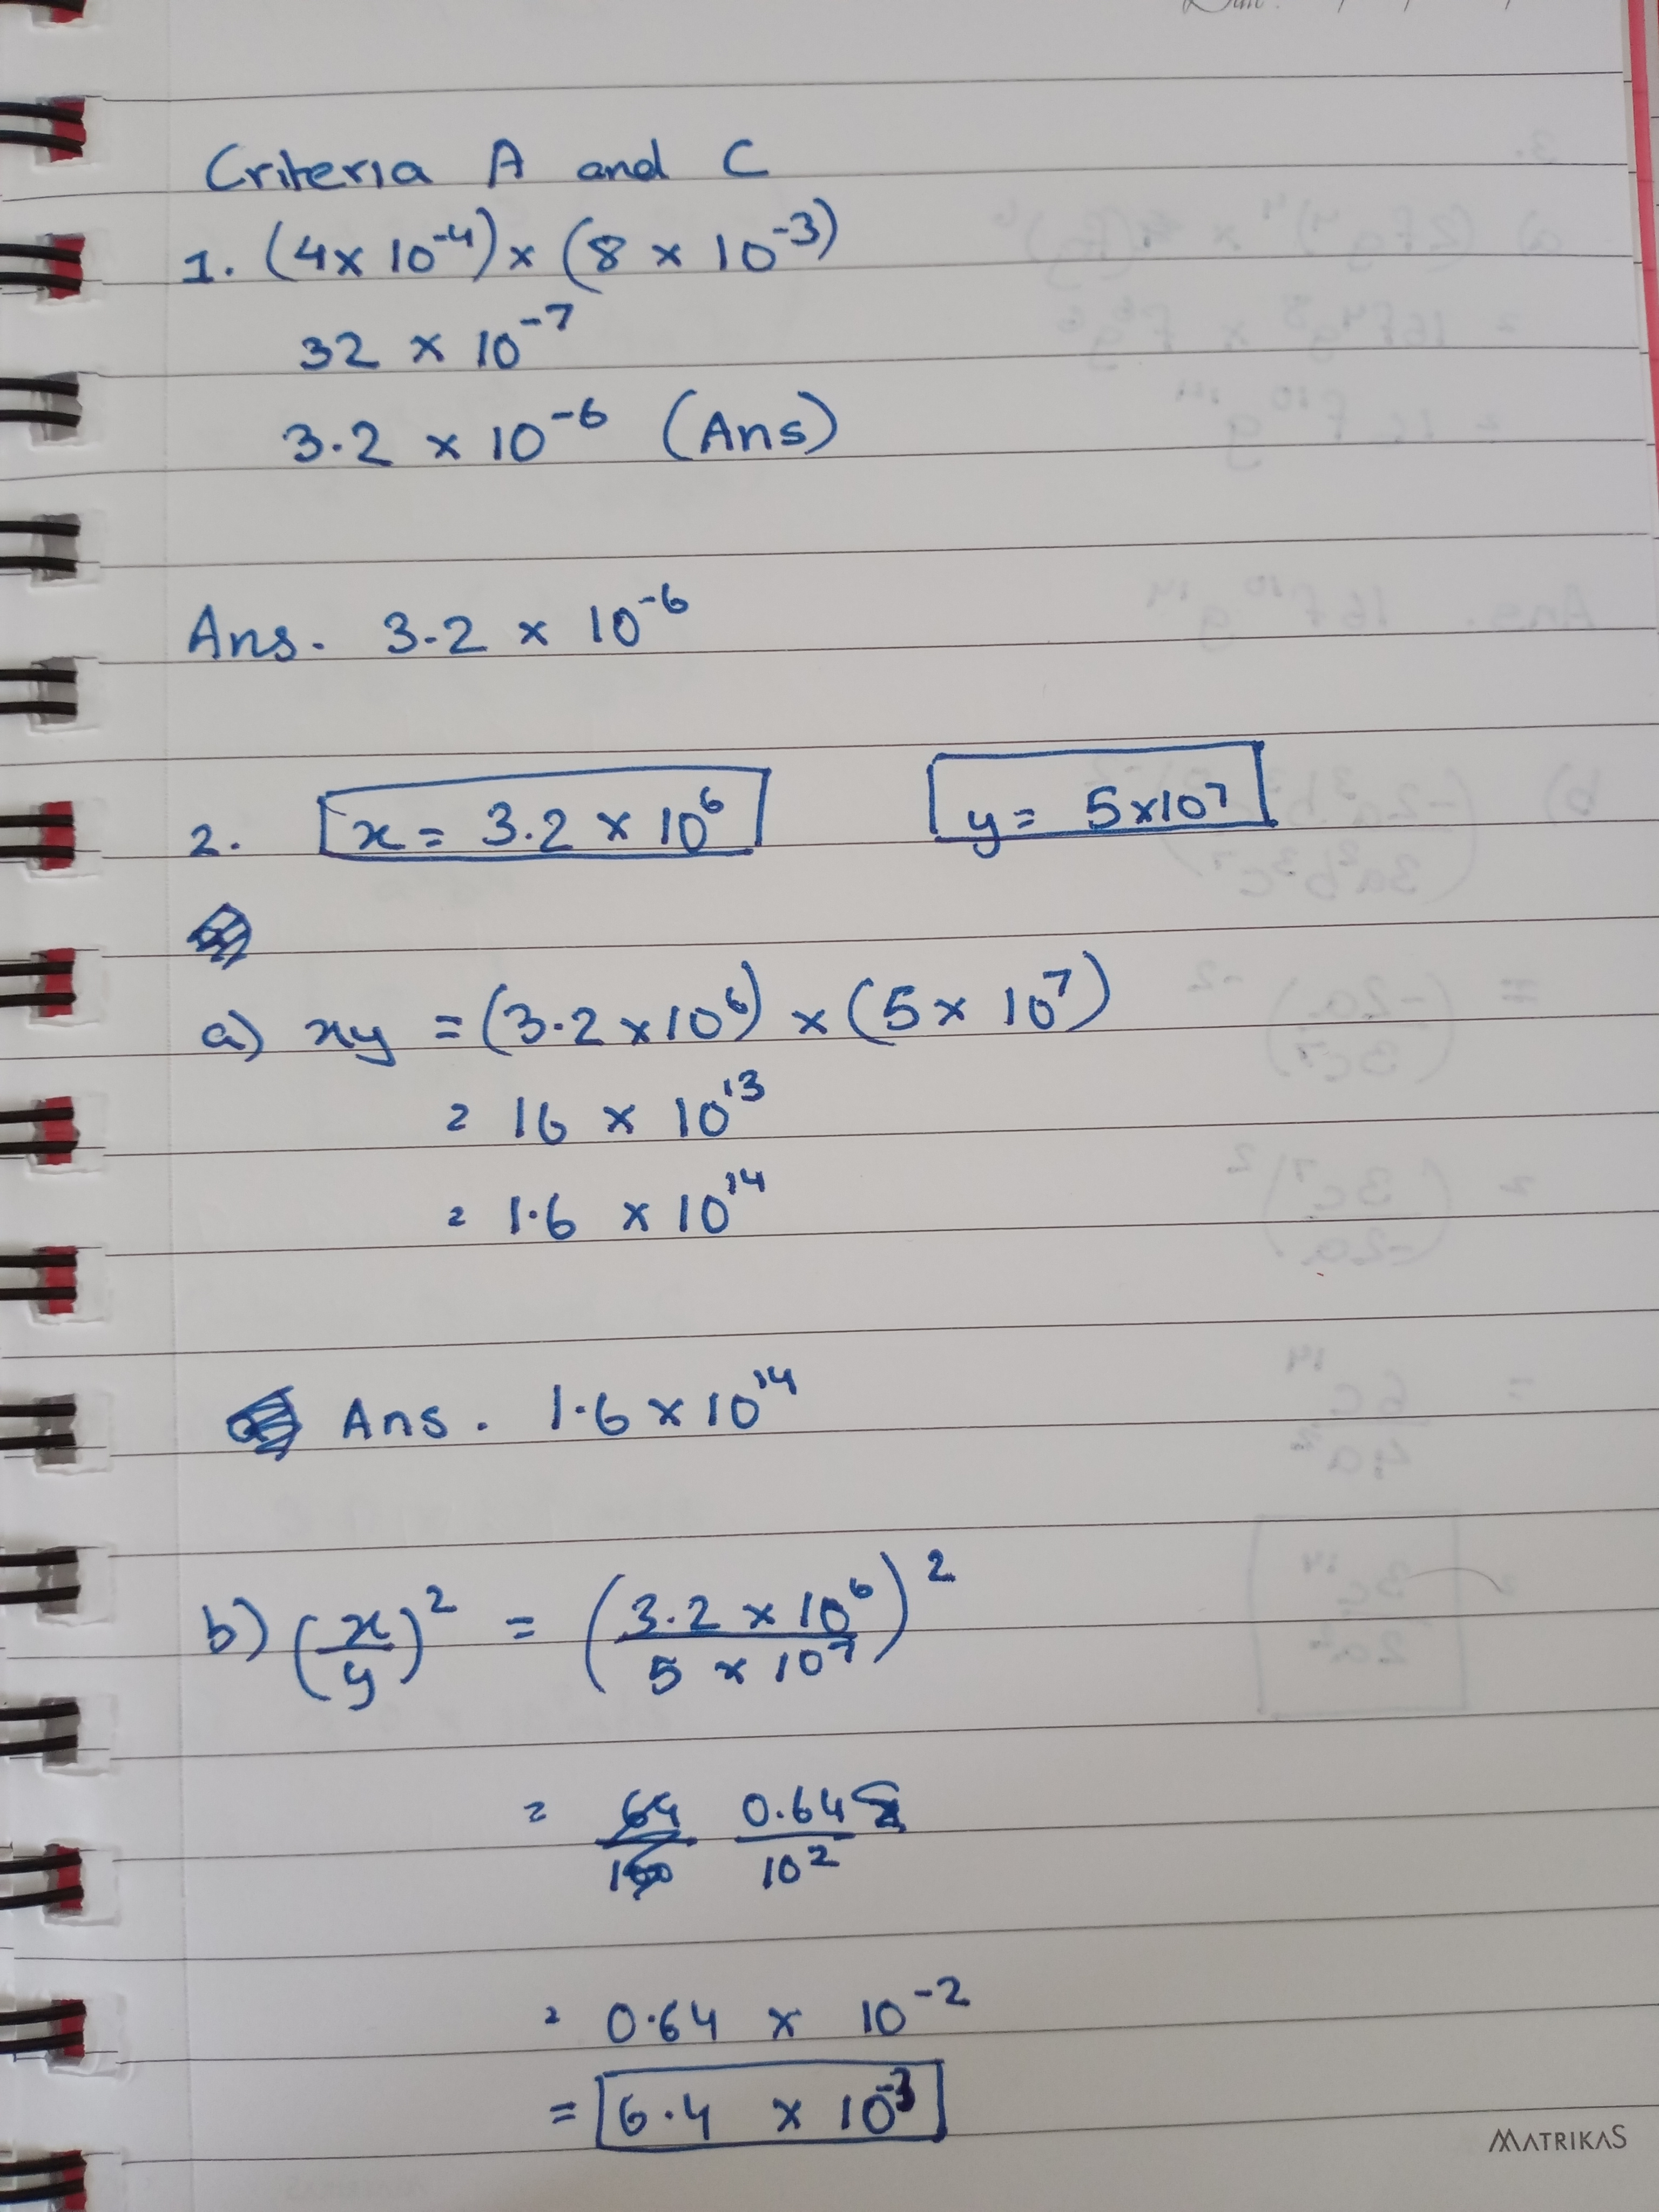 Criteria A and C
1. (4 x 10⁻⁴) x (8 x 10⁻³)
32 x 10⁻⁷
3.2 x 10⁻⁶ (Ans)
Ans. 3.2 x 10⁻⁶
2. x = 3.2 x 10⁶ y = 5x10⁷
a) xy = (3.2 x 10⁶) x (5 x 10⁷)
= 16 x 10¹³
= 1.6 x 10¹⁴
Ans. 1.6 x 10¹⁴
b) (x/y)² = (3.2 x 10⁶ / 5 x 10⁷)²
= 0.64 / 10²
= 0.64 x 10⁻²
= 6.4 x 10⁻³
MATRIKAS